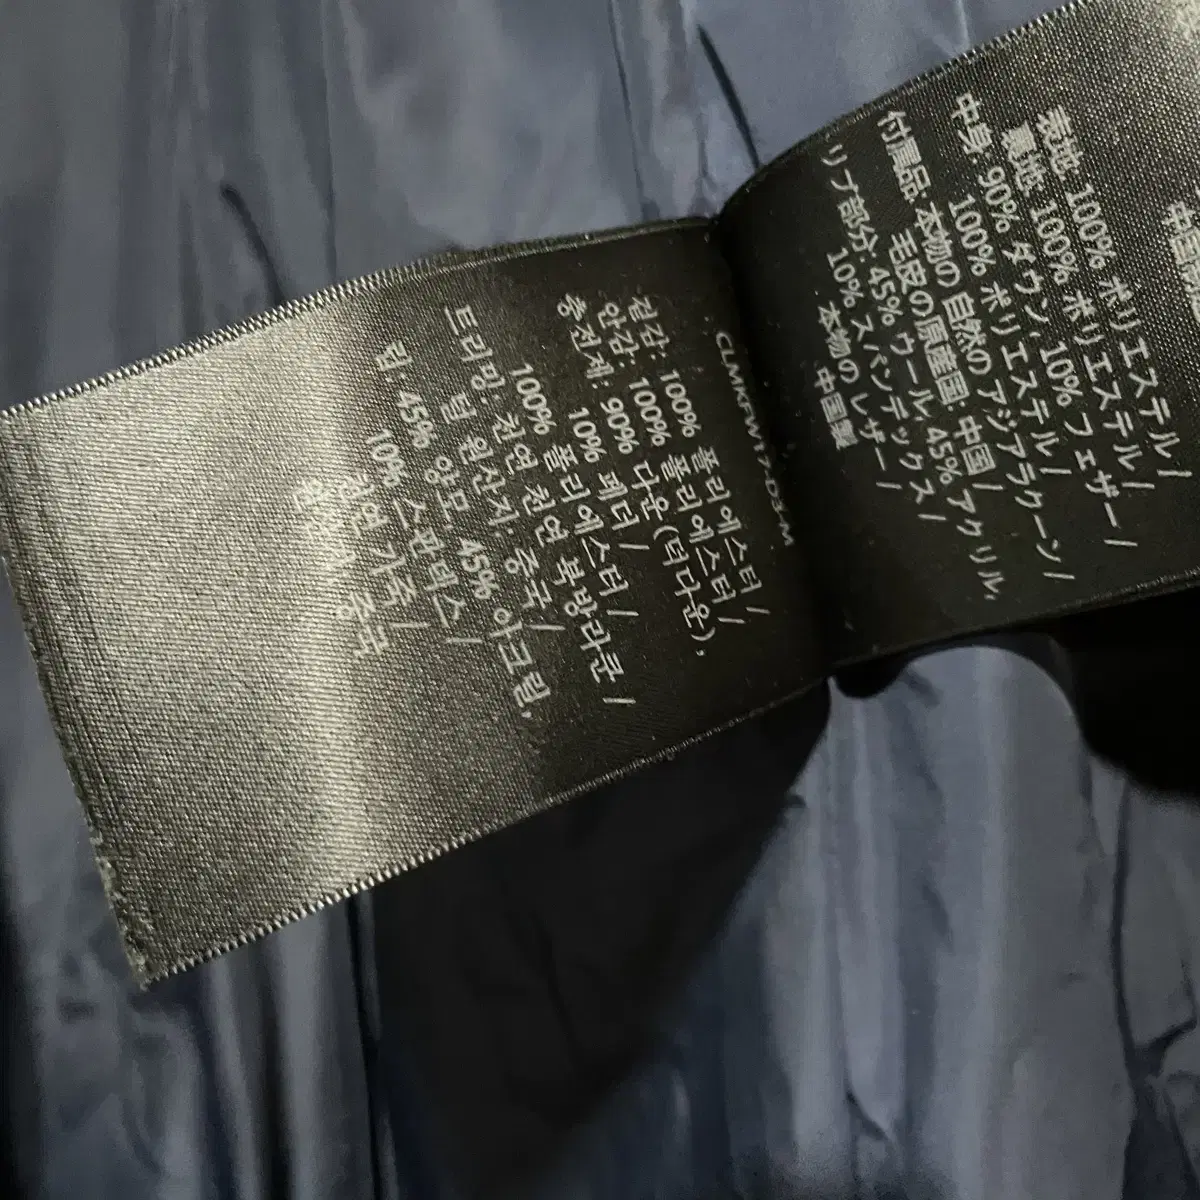 中国製
表地: 100% ポリエステル /
裏地: 100% ポリエステル /
中身: 90% ダウン, 10% フェザー /
100% ポリエステル /
付属品: 本物の自然のアジアラクーン /
毛皮の原産国: 中国 /
リブ部分: 45% ウール, 45% アクリル,
10% スパンデックス /
本物のレザー /
中国製
CLMKRW17-DS-M
겉감: 100% 폴리에스터 /
안감: 100% 폴리에스터 /
충전재: 90% 다운 (덕다운),
10% 페더 /
100% 폴리에스터 /
트리밍: 천연 천연 북방라쿤 /
털 원산지: 중국 /
립: 45% 양모, 45% 아크릴,
10% 스판덱스 /
천연 가죽 /
원산지 중국